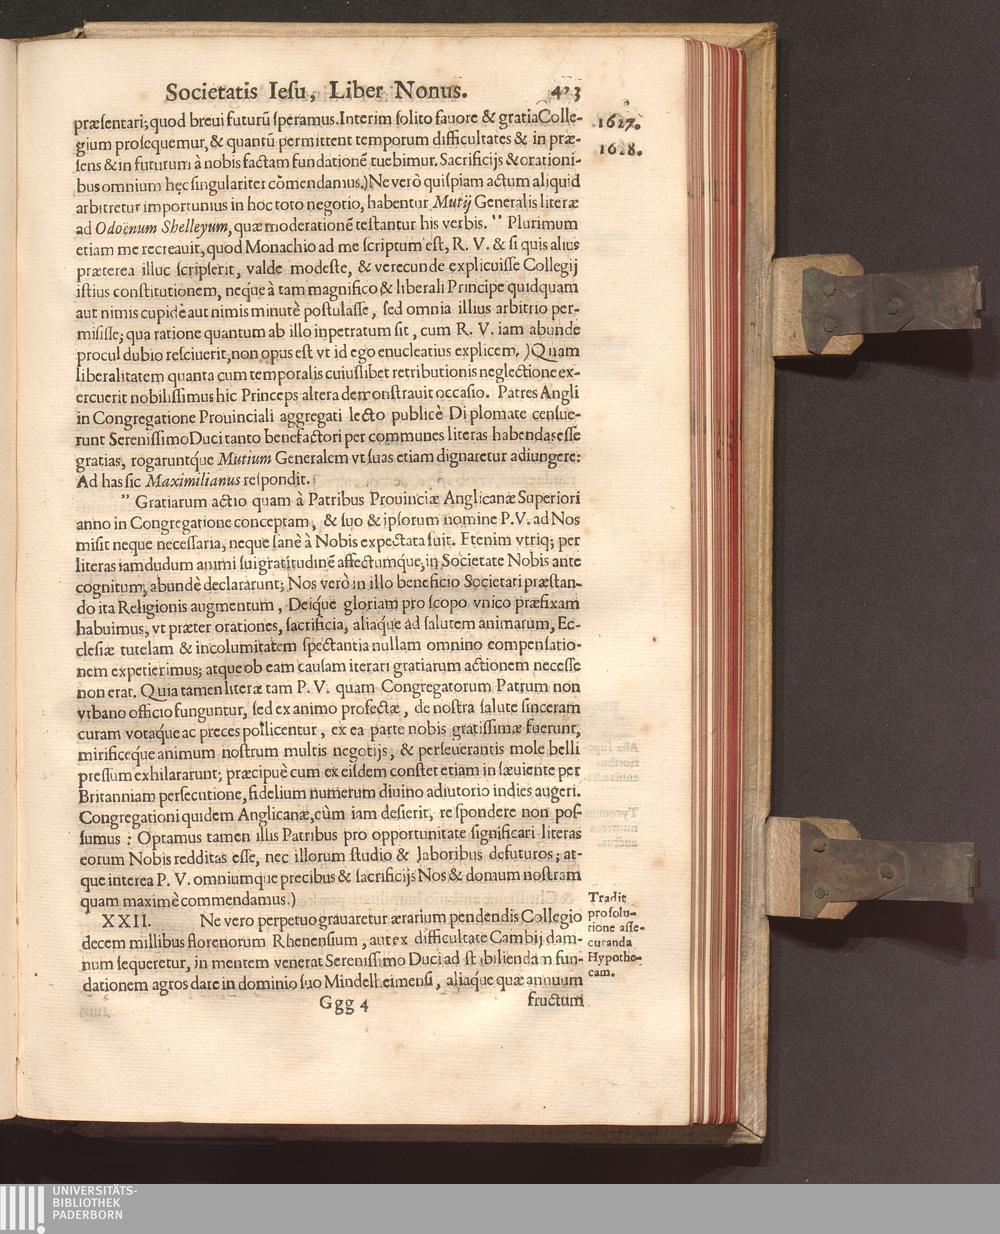 Societatis Iesu, Liber Nonus. 423
præsentari; quod breui futurũ speramus. Interim solito fauore & gratia Colle-
gium prosequemur, & quantũ permittent temporum difficultates & in præ-
sens & in futurum à nobis factam fundationẽ tuebimur. Sacrificijs & orationi-
bus omnium hęc singulariter cõmendamus.) Ne verò quispiam actum aliquid
arbitretur importunius in hoc toto negotio, habentur Mutij Generalis literæ
ad Odoënum Shelleyum, quæ moderationẽ testantur his verbis. " Plurimum
etiam me recreauit, quod Monachio ad me scriptum est, R. V. & si quis alius
præterea illuc scripserit, valde modeste, & verecunde explicuisse Collegij
istius constitutionem, neque à tam magnifico & liberali Principe quidquam
aut nimis cupidè aut nimis minutè postulasse, sed omnia illius arbitrio per-
misisse; qua ratione quantum ab illo inpetratum sit, cum R. V. iam abunde
procul dubio resciuerit, non opus est vt id ego enucleatius explicem. ) Quam
liberalitatem quanta cum temporalis cuiuslibet retributionis neglectione ex-
ercuerit nobilissimus hic Princeps altera demonstrauit occasio. Patres Angli
in Congregatione Prouinciali aggregati lecto publicè Diplomate censue-
runt Serenissimo Duci tanto benefactori per communes literas habendas esse
gratias, rogaruntq́ue Mutium Generalem vt suas etiam dignaretur adiungere:
Ad has sic Maximilianus respondit.
" Gratiarum actio quam à Patribus Prouinciæ Anglicanæ Superiori
anno in Congregatione conceptam, & suo & ipsorum nomine P. V. ad Nos
misit neque necessaria, neque sanè à Nobis expectata fuit. Etenim vtriq; per
literas iamdudum animi sui gratitudinẽ affectumque, in Societate Nobis ante
cognitum, abundè declararunt; Nos verò in illo beneficio Societati præstan-
do ita Religionis augmentum, Deiq́ue gloriam pro scopo vnico præfixam
habuimus, vt præter orationes, sacrificia, aliaq́ue ad salutem animarum, Ec-
clesiæ tutelam & incolumitatem spectantia nullam omnino compensatio-
nem expetierimus; atque ob eam causam iterari gratiarum actionem necesse
non erat. Quia tamen literæ tam P. V. quam Congregatorum Patrum non
vrbano officio funguntur, sed ex animo profectæ, de nostra salute sinceram
curam votaq́ue ac preces pollicentur, ex ea parte nobis gratissimæ fuerunt,
mirificeq́ue animum nostrum multis negotijs, & perseuerantis mole belli
pressum exhilararunt; præcipuè cum ex eisdem constet etiam in sæuiente per
Britanniam persecutione, fidelium numerum diuino adiutorio indies augeri.
Congregationi quidem Anglicanæ, cùm iam desierit, respondere non pos-
sumus: Optamus tamen illis Patribus pro opportunitate significari literas
eorum Nobis redditas esse, nec illorum studio & laboribus defuturos; at-
que interea P. V. omniumque precibus & sacrificijs Nos & domum nostram
quam maximè commendamus.)
XXII. Ne vero perpetuo grauaretur ærarium pendendis Collegio
decem millibus florenorum Rhenensium, aut ex difficultate Cambij dam-
num sequeretur, in mentem venerat Serenissimo Duci ad stabiliendam fun-
dationem agros dare in dominio suo Mindelheimensi, aliaq́ue quæ annuum
Ggg 4 fructum
1627.
1628.
Tradit
pro solu-
tione asse-
curanda
Hypothe-
cam.
UNIVERSITÄTS-
BIBLIOTHEK
PADERBORN